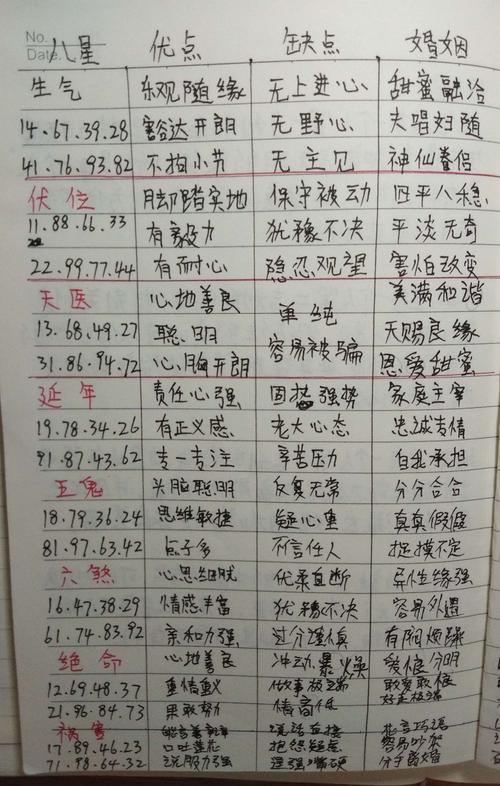 No.
Date.
八星 优点 缺点 婚姻
生气 乐观随缘 无上进心 甜蜜融洽
14.67.39.28 豁达开朗 无野心 夫唱妇随
41.76.93.82 不拘小节 无主见 神仙眷侣
伏位 脚踏实地 保守被动 四平八稳
11.88.66.33 有毅力 犹豫不决 平淡无奇
22.99.77.44 有耐心 隐忍观望 害怕改变
天医 心地善良 单纯 美满和谐
13.68.49.27 聪明 容易被骗 天赐良缘
31.86.94.72 心胸开朗 恩爱甜蜜
延年 责任心强 固执强势 家庭主宰
19.78.34.26 有正义感 老大心态 忠诚专情
91.87.43.62 专一专注 辛苦压力 自我承担
五鬼 头脑聪明 反复无常 分分合合
18.79.36.24 思维敏捷 疑心重 真真假假
81.97.63.42 点子多 不信任人 捉摸不定
六煞 心思细腻 优柔寡断 异性缘强
16.47.38.29 情感丰富 犹豫不决 容易外遇
61.74.83.92 亲和力强 过分谨慎 有阴烦躁
绝命 心地善良 冲动.暴燥 爱恨分明
12.69.48.37 重情重义 做事极端 敢爱敢恨
好走极端
21.96.84.73 果敢努力 情商低
祸害 说话直接 花言巧语
17.89.46.23 口吐莲花 抱怨 容易吵架
71.98.64.32 说服力强 逞强嘴硬 分手离婚